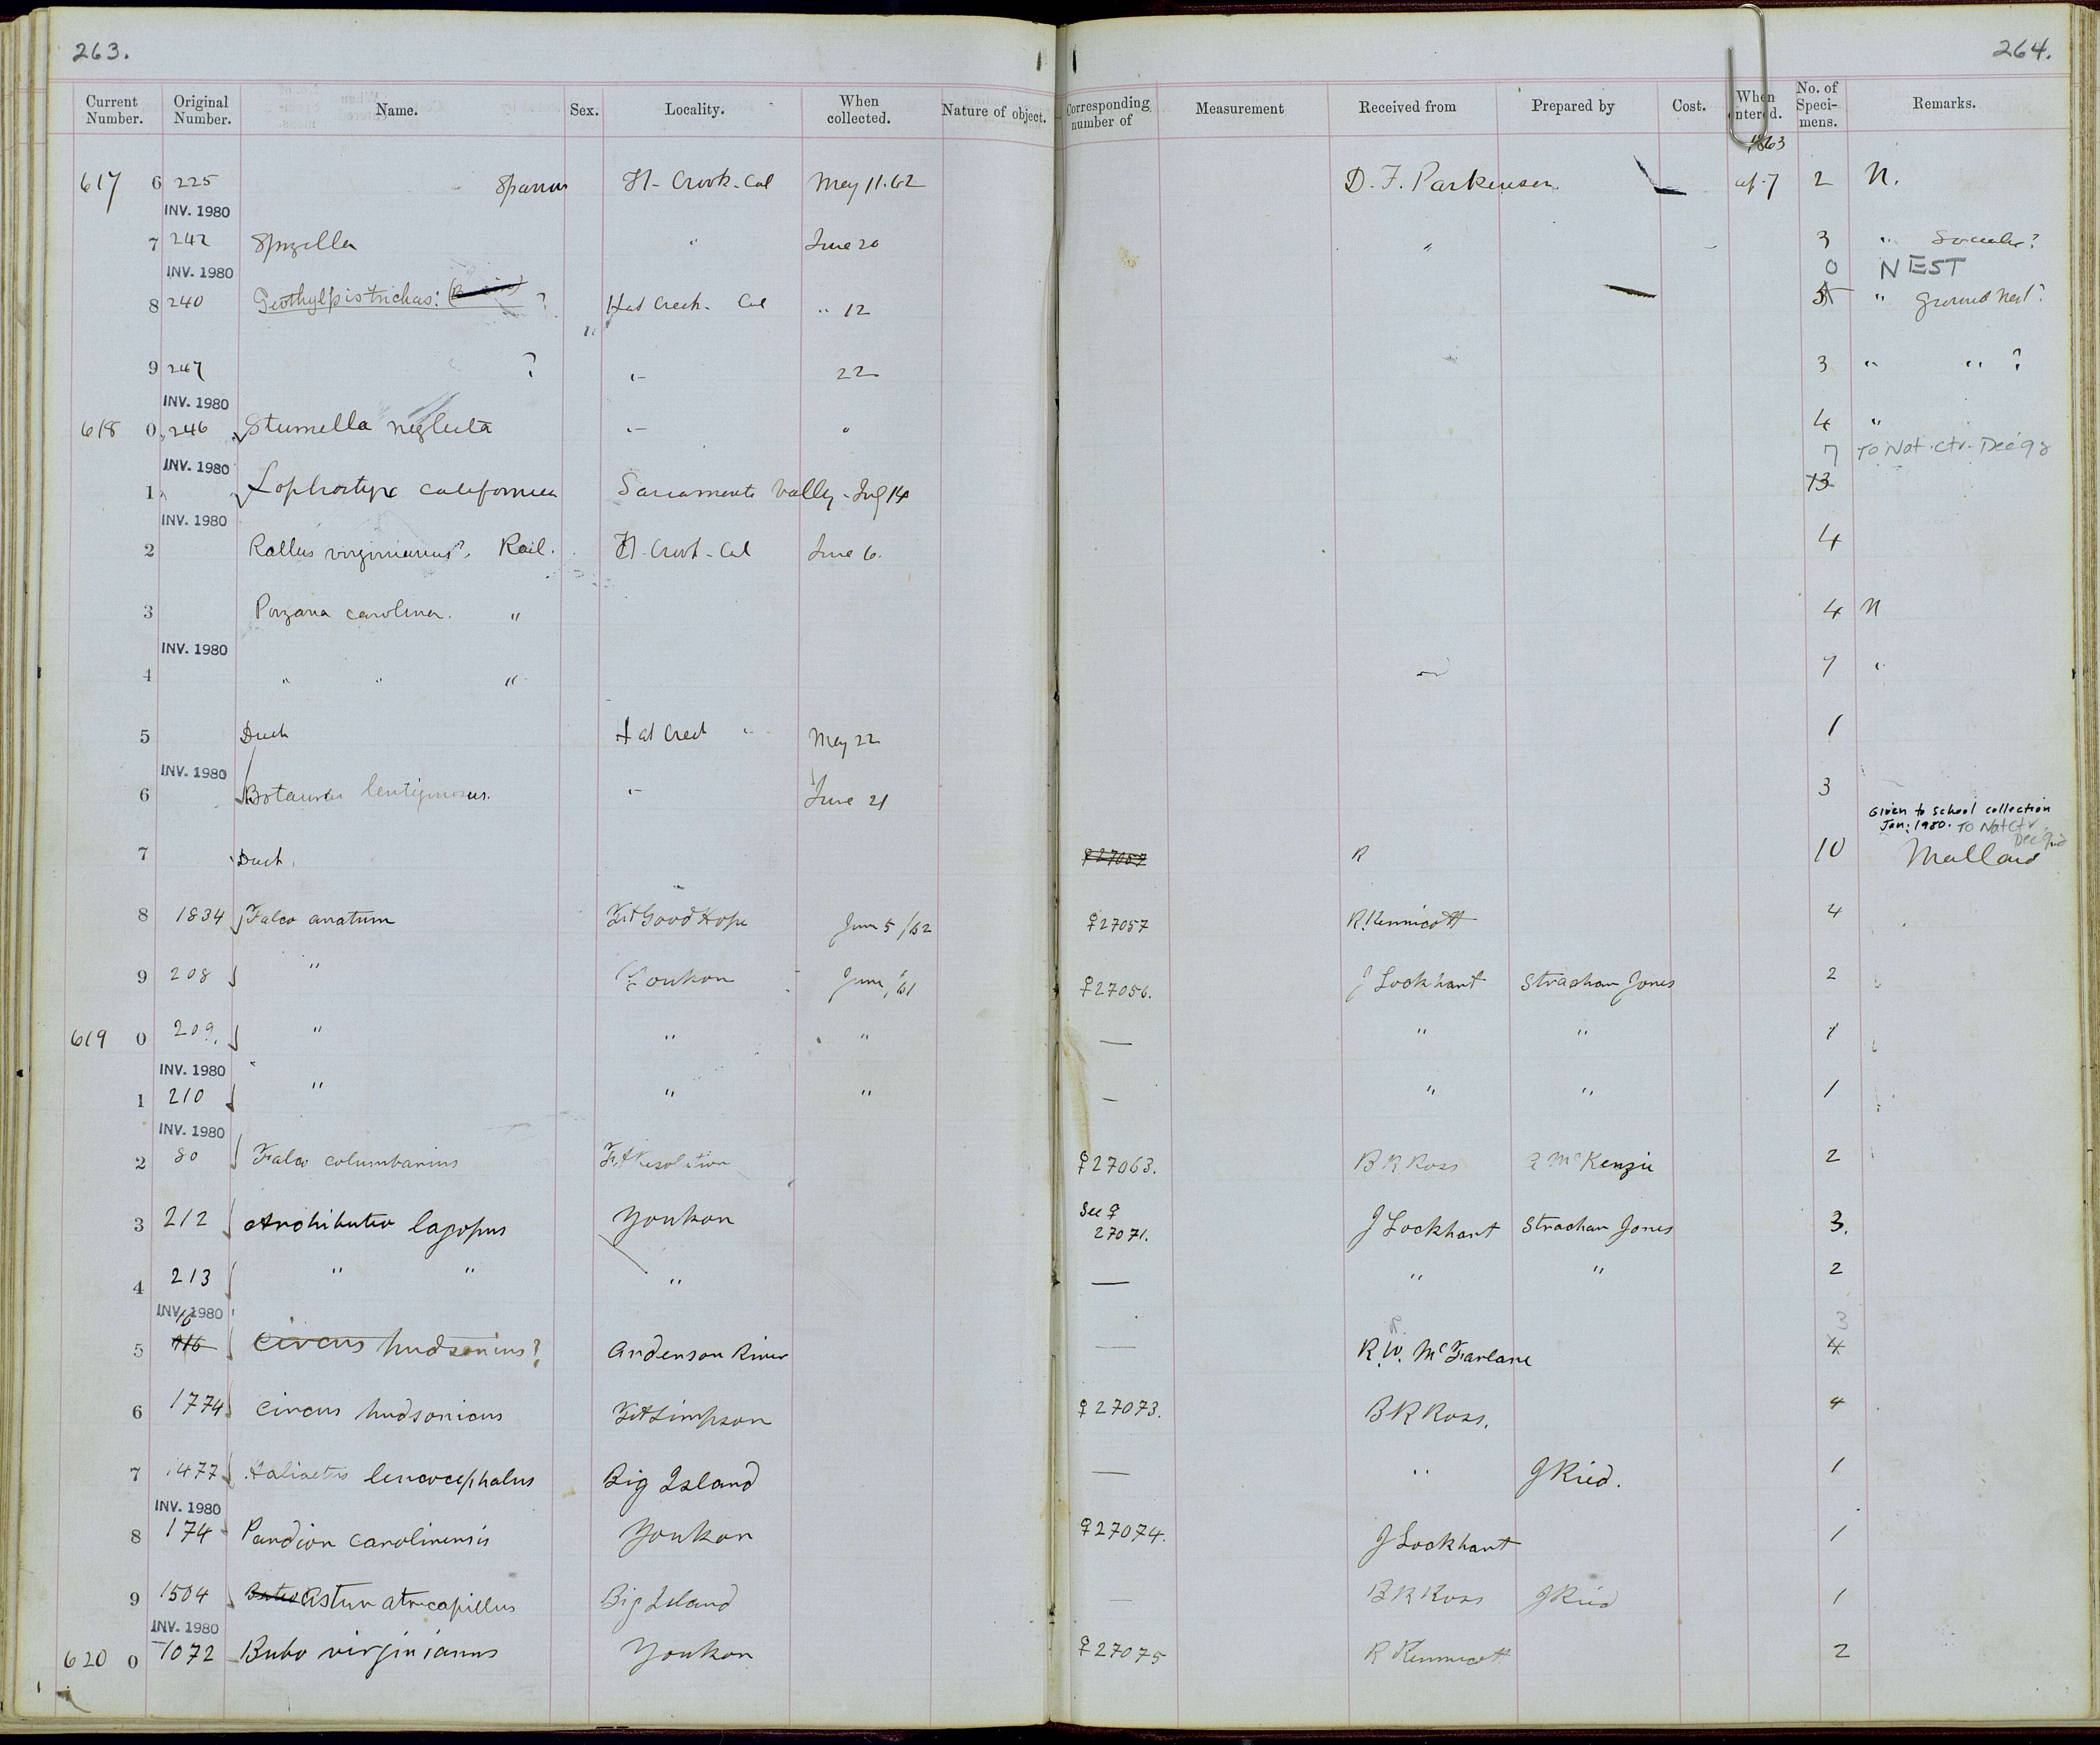 263.
264.
Current Number. Original Number. Name. Sex. Locality. When collected. Nature of object. Corresponding number of Measurement Received from Prepared by Cost. When entered. No. of Speci-mens. Remarks.
1863
617 6 225 Sparrow Ft. Crook. Cal May 11. 62 D. F. Parkinson ap. 7 2 N.
INV. 1980
7 242 Spizella " June 20 " 3 "
INV. 1980
0 NEST
8 240 Geothylpis trichas: ? Hat Creek. Cal " 12 5 " Ground Nest?
9 247 ? " 22 3 " " ?
INV. 1980
618 0 246 Sturnella neglecta " " 4 "
7 To Nat. Ctr. Dec 92
INV. 1980
1 Lophortyx californica Sacramento Valley - July 14 13
INV. 1980
2 Rallus virginianus? Rail. Ft. Crook - Cal June 6. 4
3 Porzana carolina. " 4 N
INV. 1980
4 " " " 7 "
5 Duck Hat Creek " May 22 1
INV. 1980
6 Botaurus lentiginosus. " June 21 3
Given to school collection
Jan: 1980. To Nat Ctr.
Dec 92
7 Duck. ♀27057 R 10 Mallard
8 1834 Falco anatum Ft Good Hope June 5/62 ♀27057 R. Kennicott 4
9 208 " Youkon June, 61 ♀27056. J Lockhart Strachan Jones 2
619 0 209. " " " — " " 1
INV. 1980
1 210 " " " — " " 1
INV. 1980
2 80 Falco columbarius Ft Resolution ♀27063. B R Ross McKenzie 2
3 212 Archibuteo lagopus Youkon See ♀ 27071. J Lockhart Strachan Jones 3.
4 213 " " " — " " 2
INV. 1980
16
3
5 916 Circus hudsonius? Anderson River — R. W. McFarlane 4
6 1774 Circus hudsonicus Ft Simpson ♀27073. B R Ross. 4
7 1477 Haliaetus leucocephalus Big Island — " J Ried. 1
INV. 1980
8 174 Pandion carolinensis Youkon ♀27074. J Lockhart 1
9 1504 Buteo Astur atricapillus Big Island — B R Ross J Ried 1
INV. 1980
620 0 1072 Bubo virginianus Youkon ♀27075 R Kennicott 2